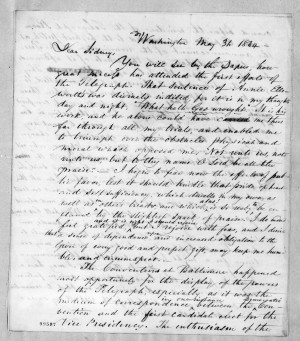 Washington May 31. 1844.
Dear Sidney,
You will see by the papers how
great success has attended the first efforts of
the Telegraph. That sentence of Annie Ells-
worth's was divinely indited for it is in my thoughts
day and night. "What hath God wrought." It is his
work, and he alone could have carried me thus
far through all my trials, and enabled me
to triumph over the obstacles physical and
moral which opposed me. "Not unto us, not
unto us, but to thy name O Lord be all the
praise." I begin to fear now the effects of pub-
lic favor, lest it should kindle that pride of heart
and self sufficiency which dwells in my own, as
well as others' breasts and which, alas! is so ready to be in-
flamed by the slightest spark of praise. I do indeed
feel gratified, and it is right I should rejoice, but I rejoice with fear, and I desire
that a sense of dependence and increased obligation to the
Giver of every good and perfect gift may keep me hum-
ble and circumspect.
The Conventions at Baltimore happened
most opportunely for the display of the powers
of the Telegraph, especially as it was the
means of correspondence, in one instance, between the Con-
vention and the first candidate elect for the
Vice Presidency. The enthusiasm of the